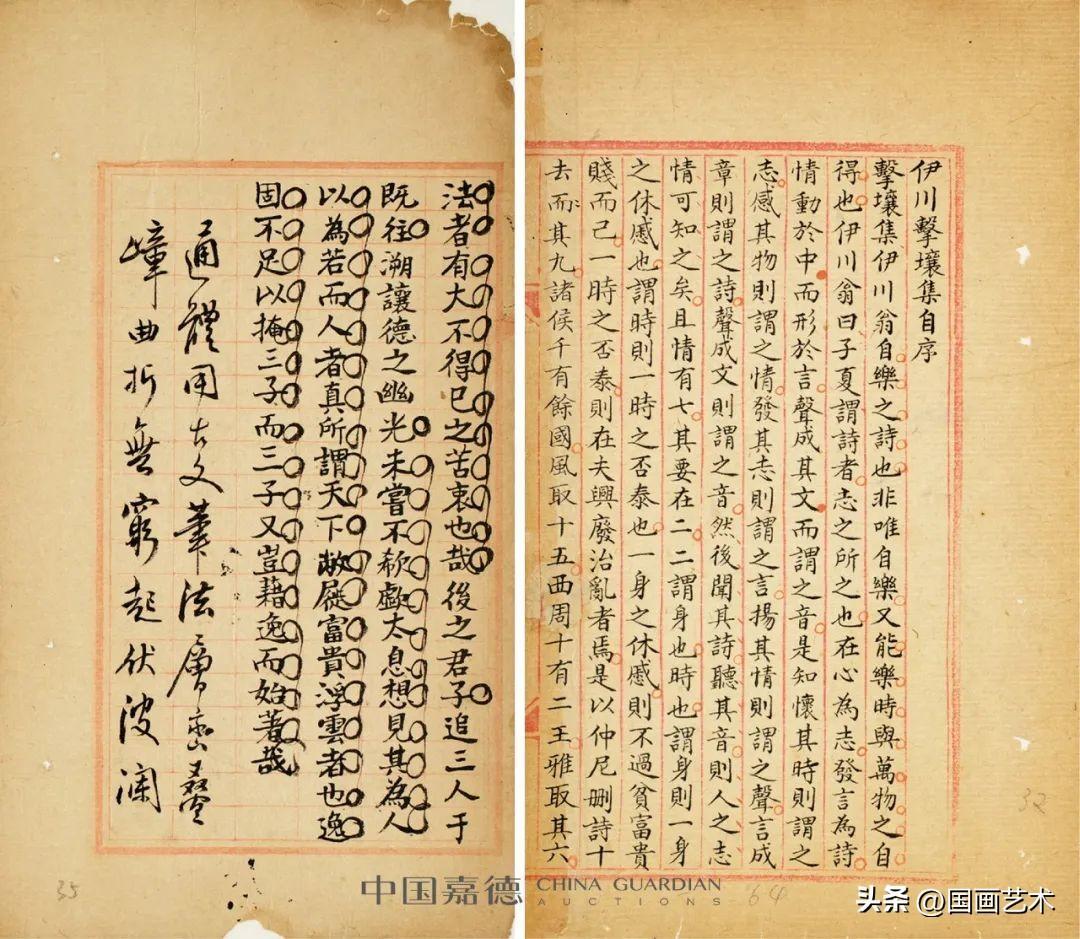 伊川擊壤集自序
擊壤集伊川翁自樂之詩也非唯自樂又能樂時與萬物之自
得也伊川翁曰子夏謂詩者志之所之也在心為志發言為詩
情動於中而形於言聲成其文而謂之音是知懷其時則謂之
志感其物則謂之情發其志則謂之言揚其情則謂之聲言成
章則謂之詩聲成文則謂之音然後聞其詩聽其音則人之志
情可知之矣且情有七其要在二二謂身也時也謂身則一身
之休慼也謂時則一時之否泰也一身之休慼則不過貧富貴
賤而已一時之否泰則在夫興廢治亂者焉是以仲尼刪詩十
去而其九諸侯千有餘國風取十五西周十有二王雅取其六
法者有大不得已之苦衷也哉後之君子追三人于
既往溯讓德之幽光未嘗不欷歔太息想見其為人
以為若而人者真所謂天下敝屣富貴浮雲者也逸
固不足以掩三子而三子又豈藉逸而始著哉
通體用古文筆法層巒疊
嶂曲折無窮起伏波瀾
35
32
64
中国嘉德 CHINA GUARDIAN AUCTIONS
头条 @国画艺术